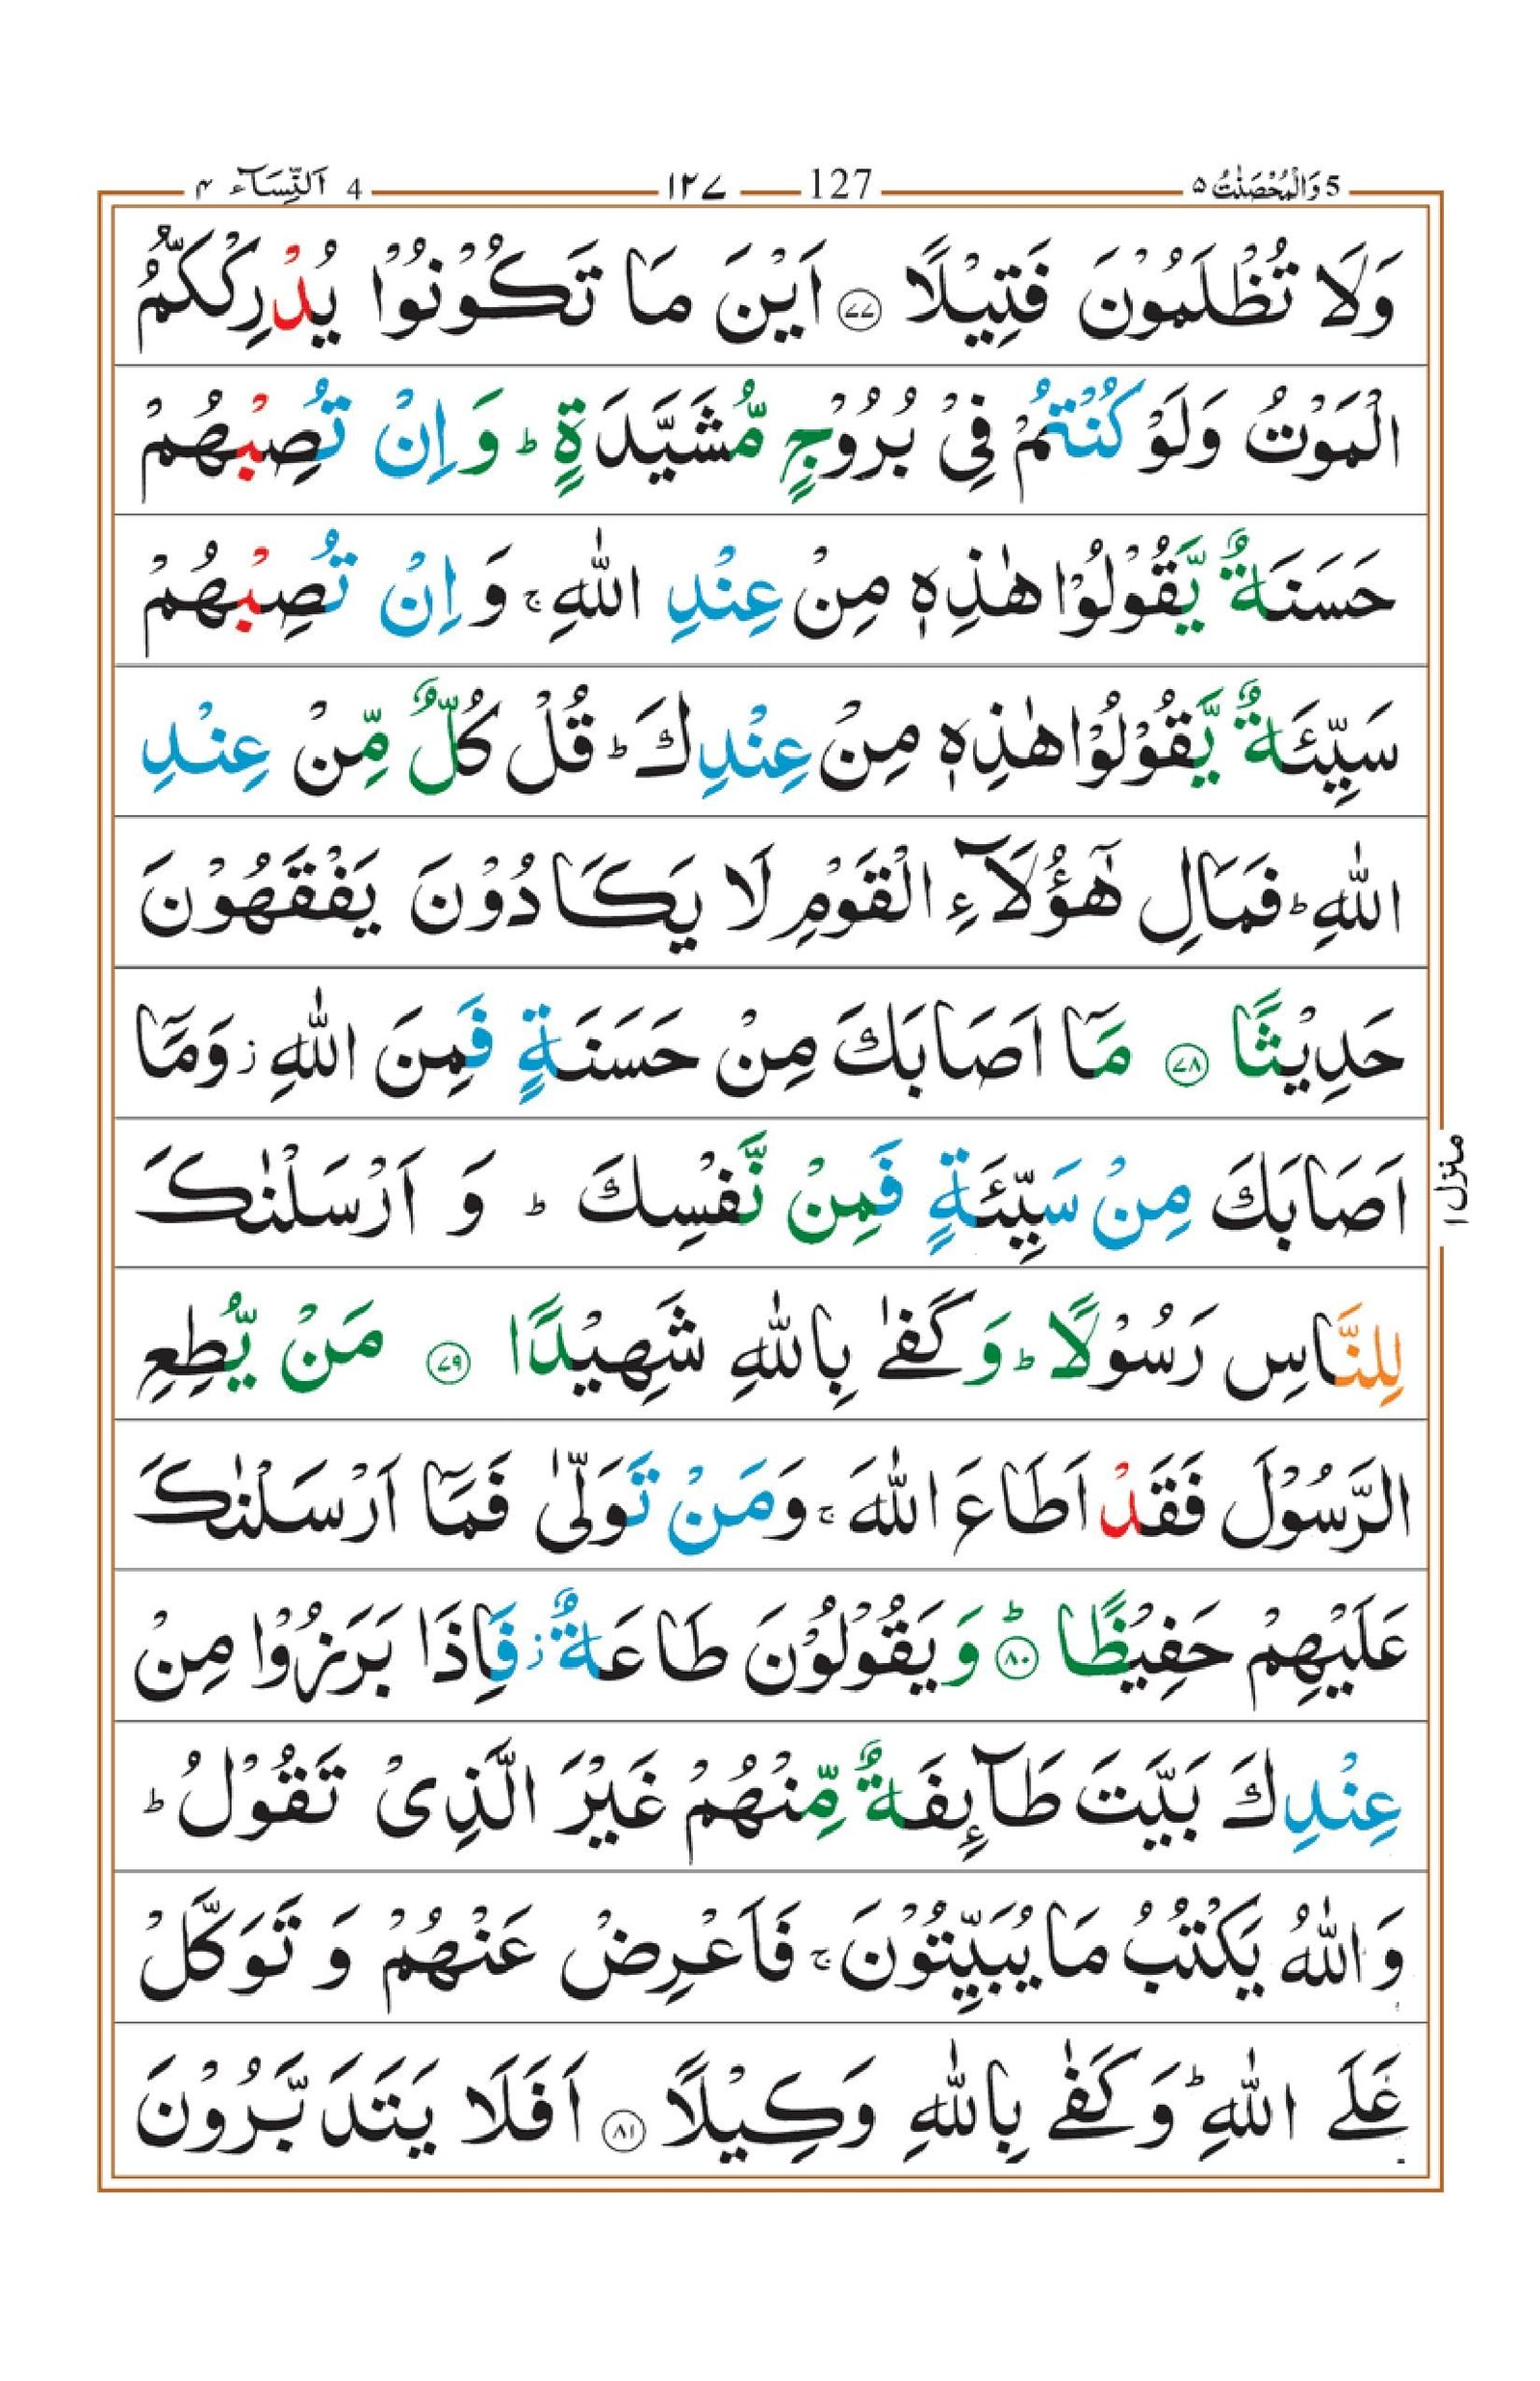 5 وَالْمُحْصَنٰتُ ۵ 127 ۱۲۷ 4 اَلنِّسَآء ۴
وَلَا تُظْلَمُوْنَ فَتِيْلًا ۷۷ اَيْنَ مَا تَكُوْنُوْا يُدْرِكْكُّمُ
الْمَوْتُ وَلَوْ كُنْتُمْ فِيْ بُرُوْجٍ مُّشَيَّدَةٍ ؕ وَ اِنْ تُصِبْهُمْ
حَسَنَةٌ يَّقُوْلُوْا هٰذِهٖ مِنْ عِنْدِ اللّٰهِ ۚ وَ اِنْ تُصِبْهُمْ
سَيِّئَةٌ يَّقُوْلُوْا هٰذِهٖ مِنْ عِنْدِكَ ؕ قُلْ كُلٌّ مِّنْ عِنْدِ
اللّٰهِ ؕ فَمَالِ هٰٓؤُلَآءِ الْقَوْمِ لَا يَكَادُوْنَ يَفْقَهُوْنَ
حَدِيْثًا ۷۸ مَاۤ اَصَابَكَ مِنْ حَسَنَةٍ فَمِنَ اللّٰهِ ؗ وَمَاۤ
اَصَابَكَ مِنْ سَيِّئَةٍ فَمِنْ نَّفْسِكَ ؕ وَ اَرْسَلْنٰكَ
لِلنَّاسِ رَسُوْلًا ؕ وَ كَفٰى بِاللّٰهِ شَهِيْدًا ۷۹ مَنْ يُّطِعِ
الرَّسُوْلَ فَقَدْ اَطَاعَ اللّٰهَ ۚ وَمَنْ تَوَلّٰى فَمَاۤ اَرْسَلْنٰكَ
عَلَيْهِمْ حَفِيْظًا ؕ ۸۰ وَ يَقُوْلُوْنَ طَاعَةٌ ؗ فَاِذَا بَرَزُوْا مِنْ
عِنْدِكَ بَيَّتَ طَآئِفَةٌ مِّنْهُمْ غَيْرَ الَّذِيْ تَقُوْلُ ؕ
وَاللّٰهُ يَكْتُبُ مَا يُبَيِّتُوْنَ ۚ فَاَعْرِضْ عَنْهُمْ وَ تَوَكَّلْ
عَلَى اللّٰهِ ؕ وَ كَفٰى بِاللّٰهِ وَكِيْلًا ۸۱ اَفَلَا يَتَدَبَّرُوْنَ
منزل ۱